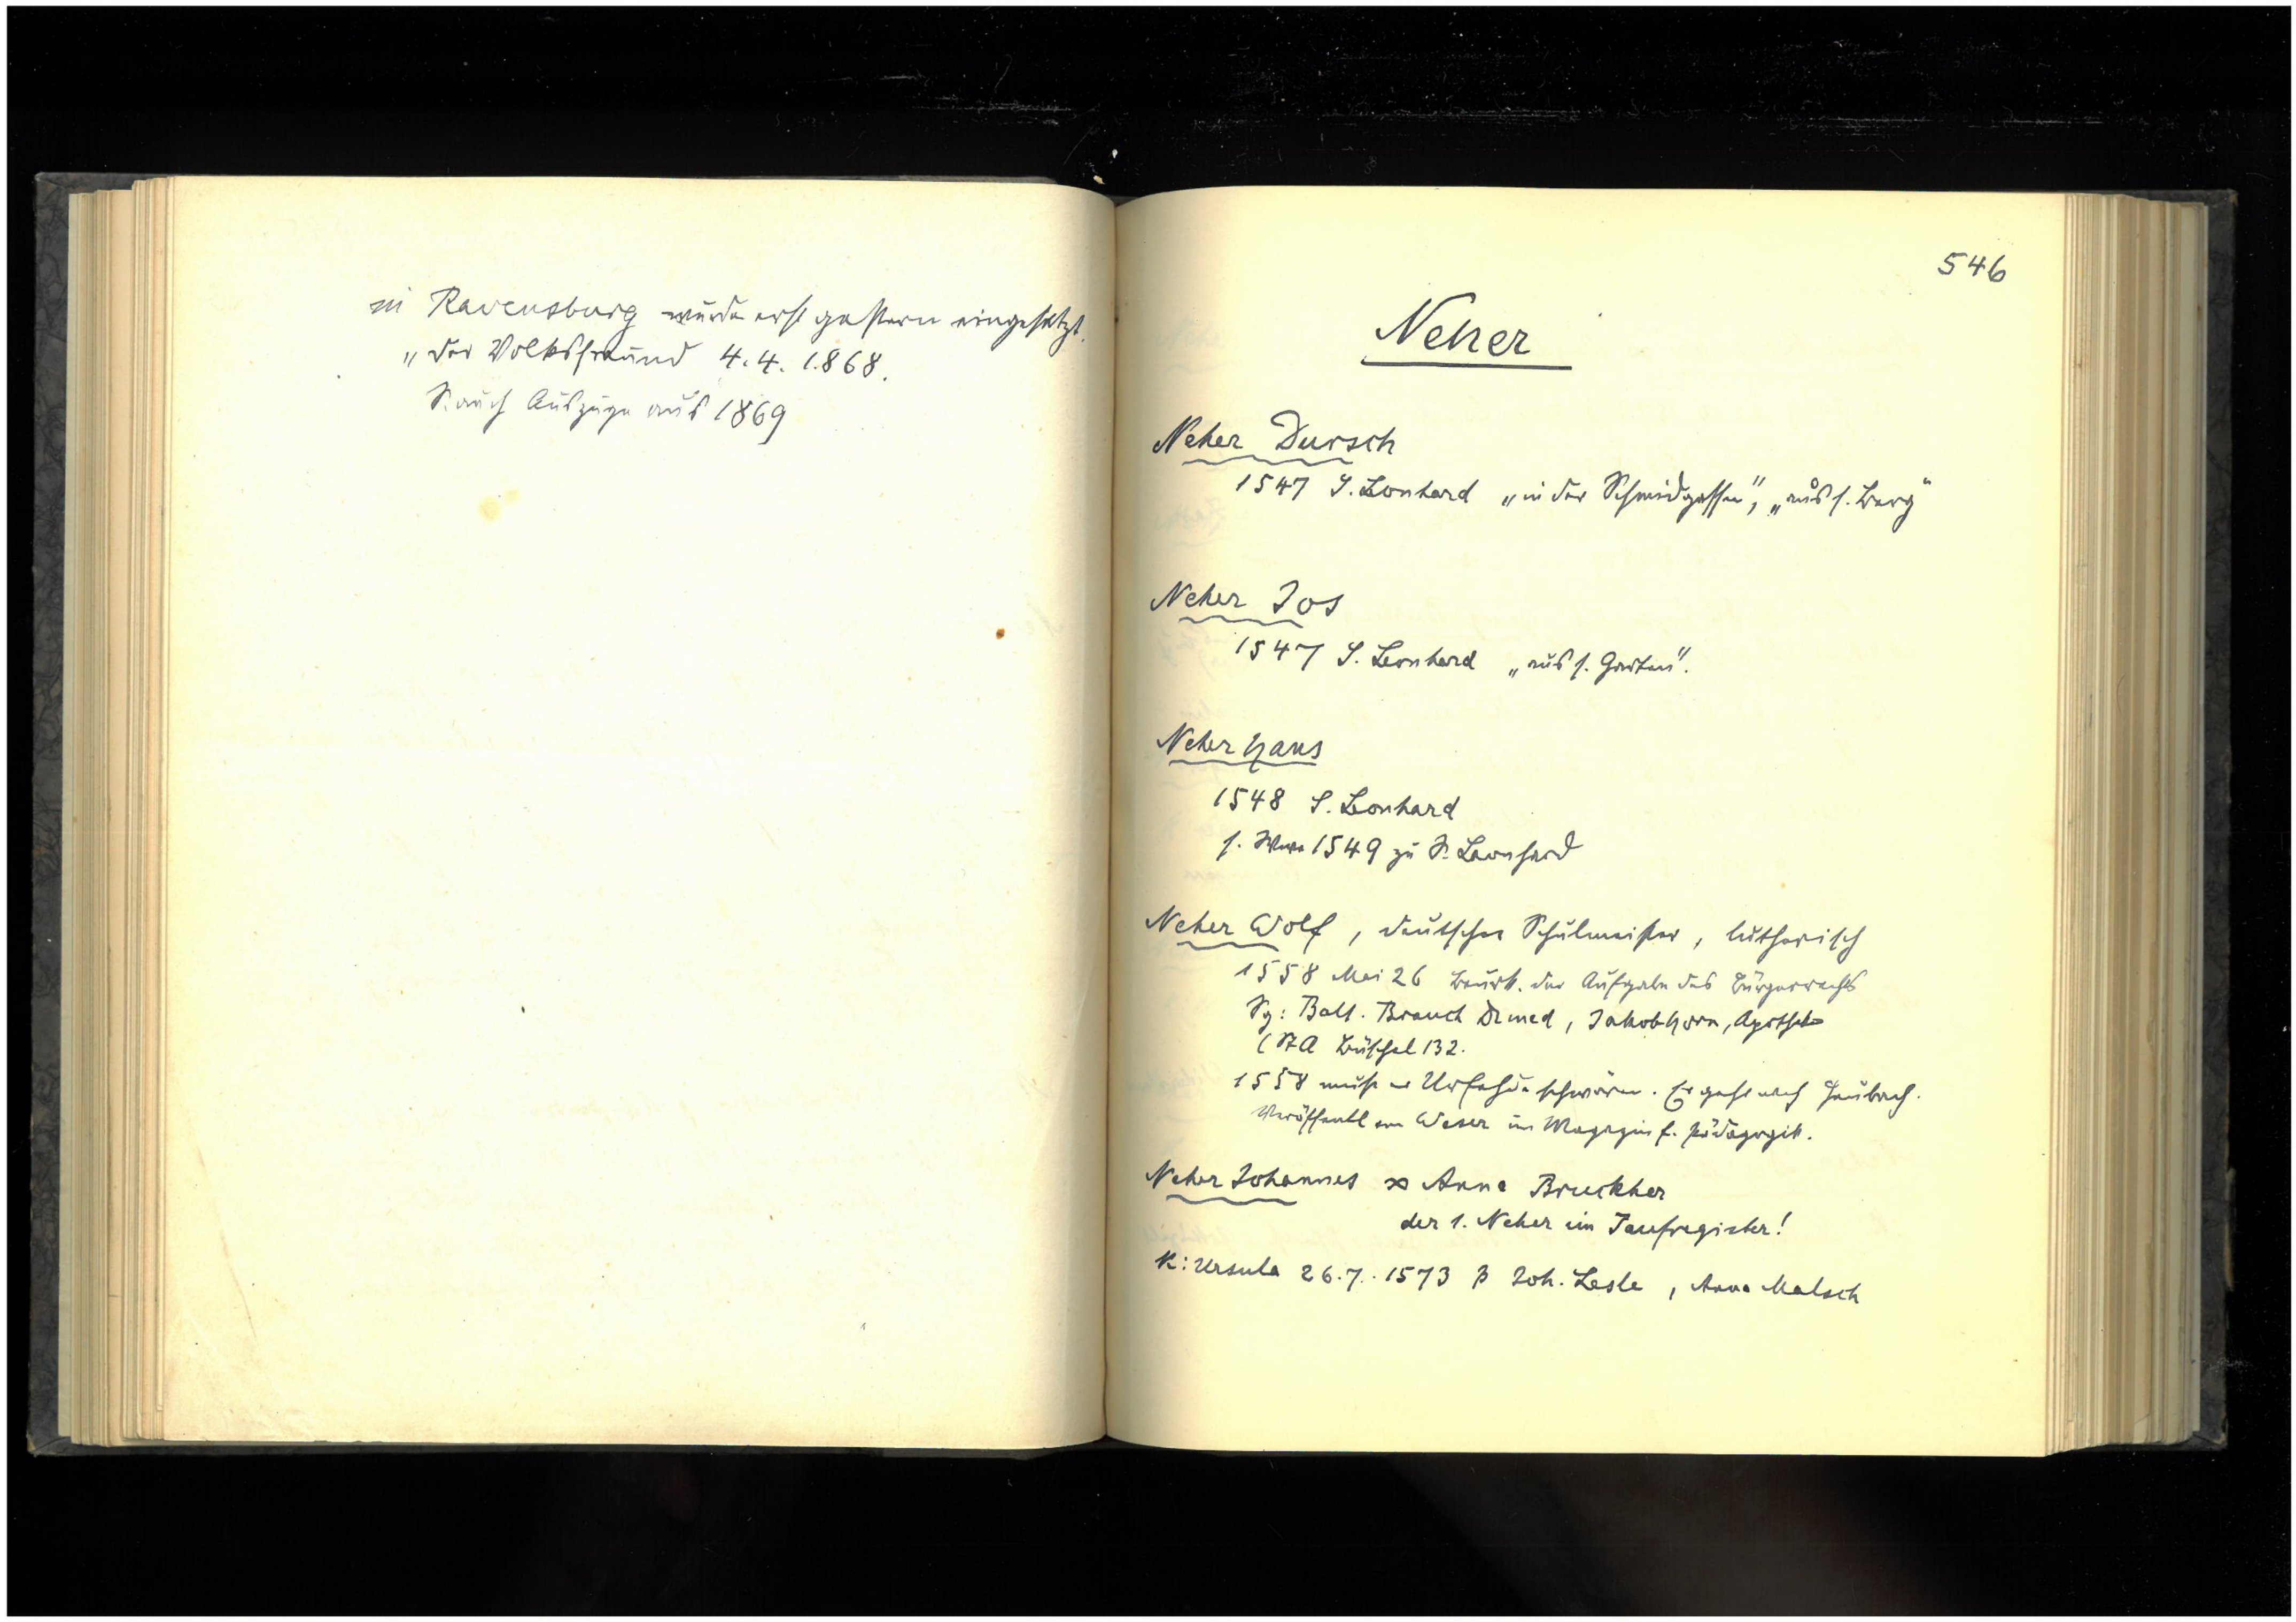 in Ravensburg wurde erst gestern eingesetzt.
„ der Volksfreund 4.4.1868.
S. auch Auszüge aus 1869
546
Neher
Neher Dursch
1547 S. Leonhard „in der Schmidgassen", „aus s. Berg"
Neher Jos
1547 S. Leonhard „aus s. Garten".
Neher Hans
1548 S. Leonhard
s. Wwe 1549 zu S. Leonhard
Neher Wolf, deutscher Schulmeister, lutherisch
1558 Mai 26 beurk. der Aufgabe des Bürgerrechts
Sg: Balt. Brauch Dr med, Jakob Horn, Apothek
(StA Büschel 132.
1558 muss er Urfehde schwören. Er geht nach Heubach.
Veröffentl von Weser im Magazin f. Pädagogik.
Neher Johannes ∞ Anna Bruckher
der 1. Neher im Taufregister!
K: Ursula 26.7.1573 P Joh. Lesle, Anna Malsch